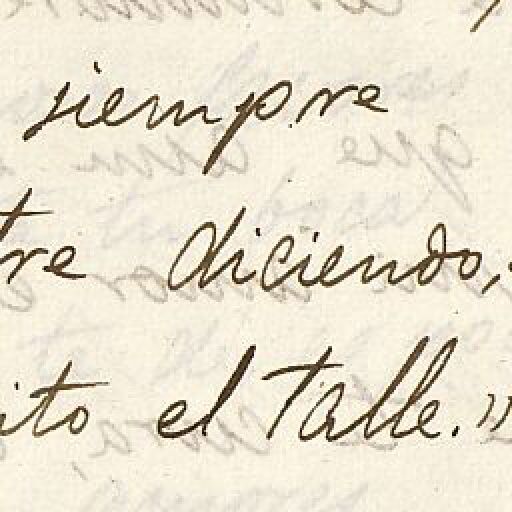 siempre
tre diciendo,
ito el talle."